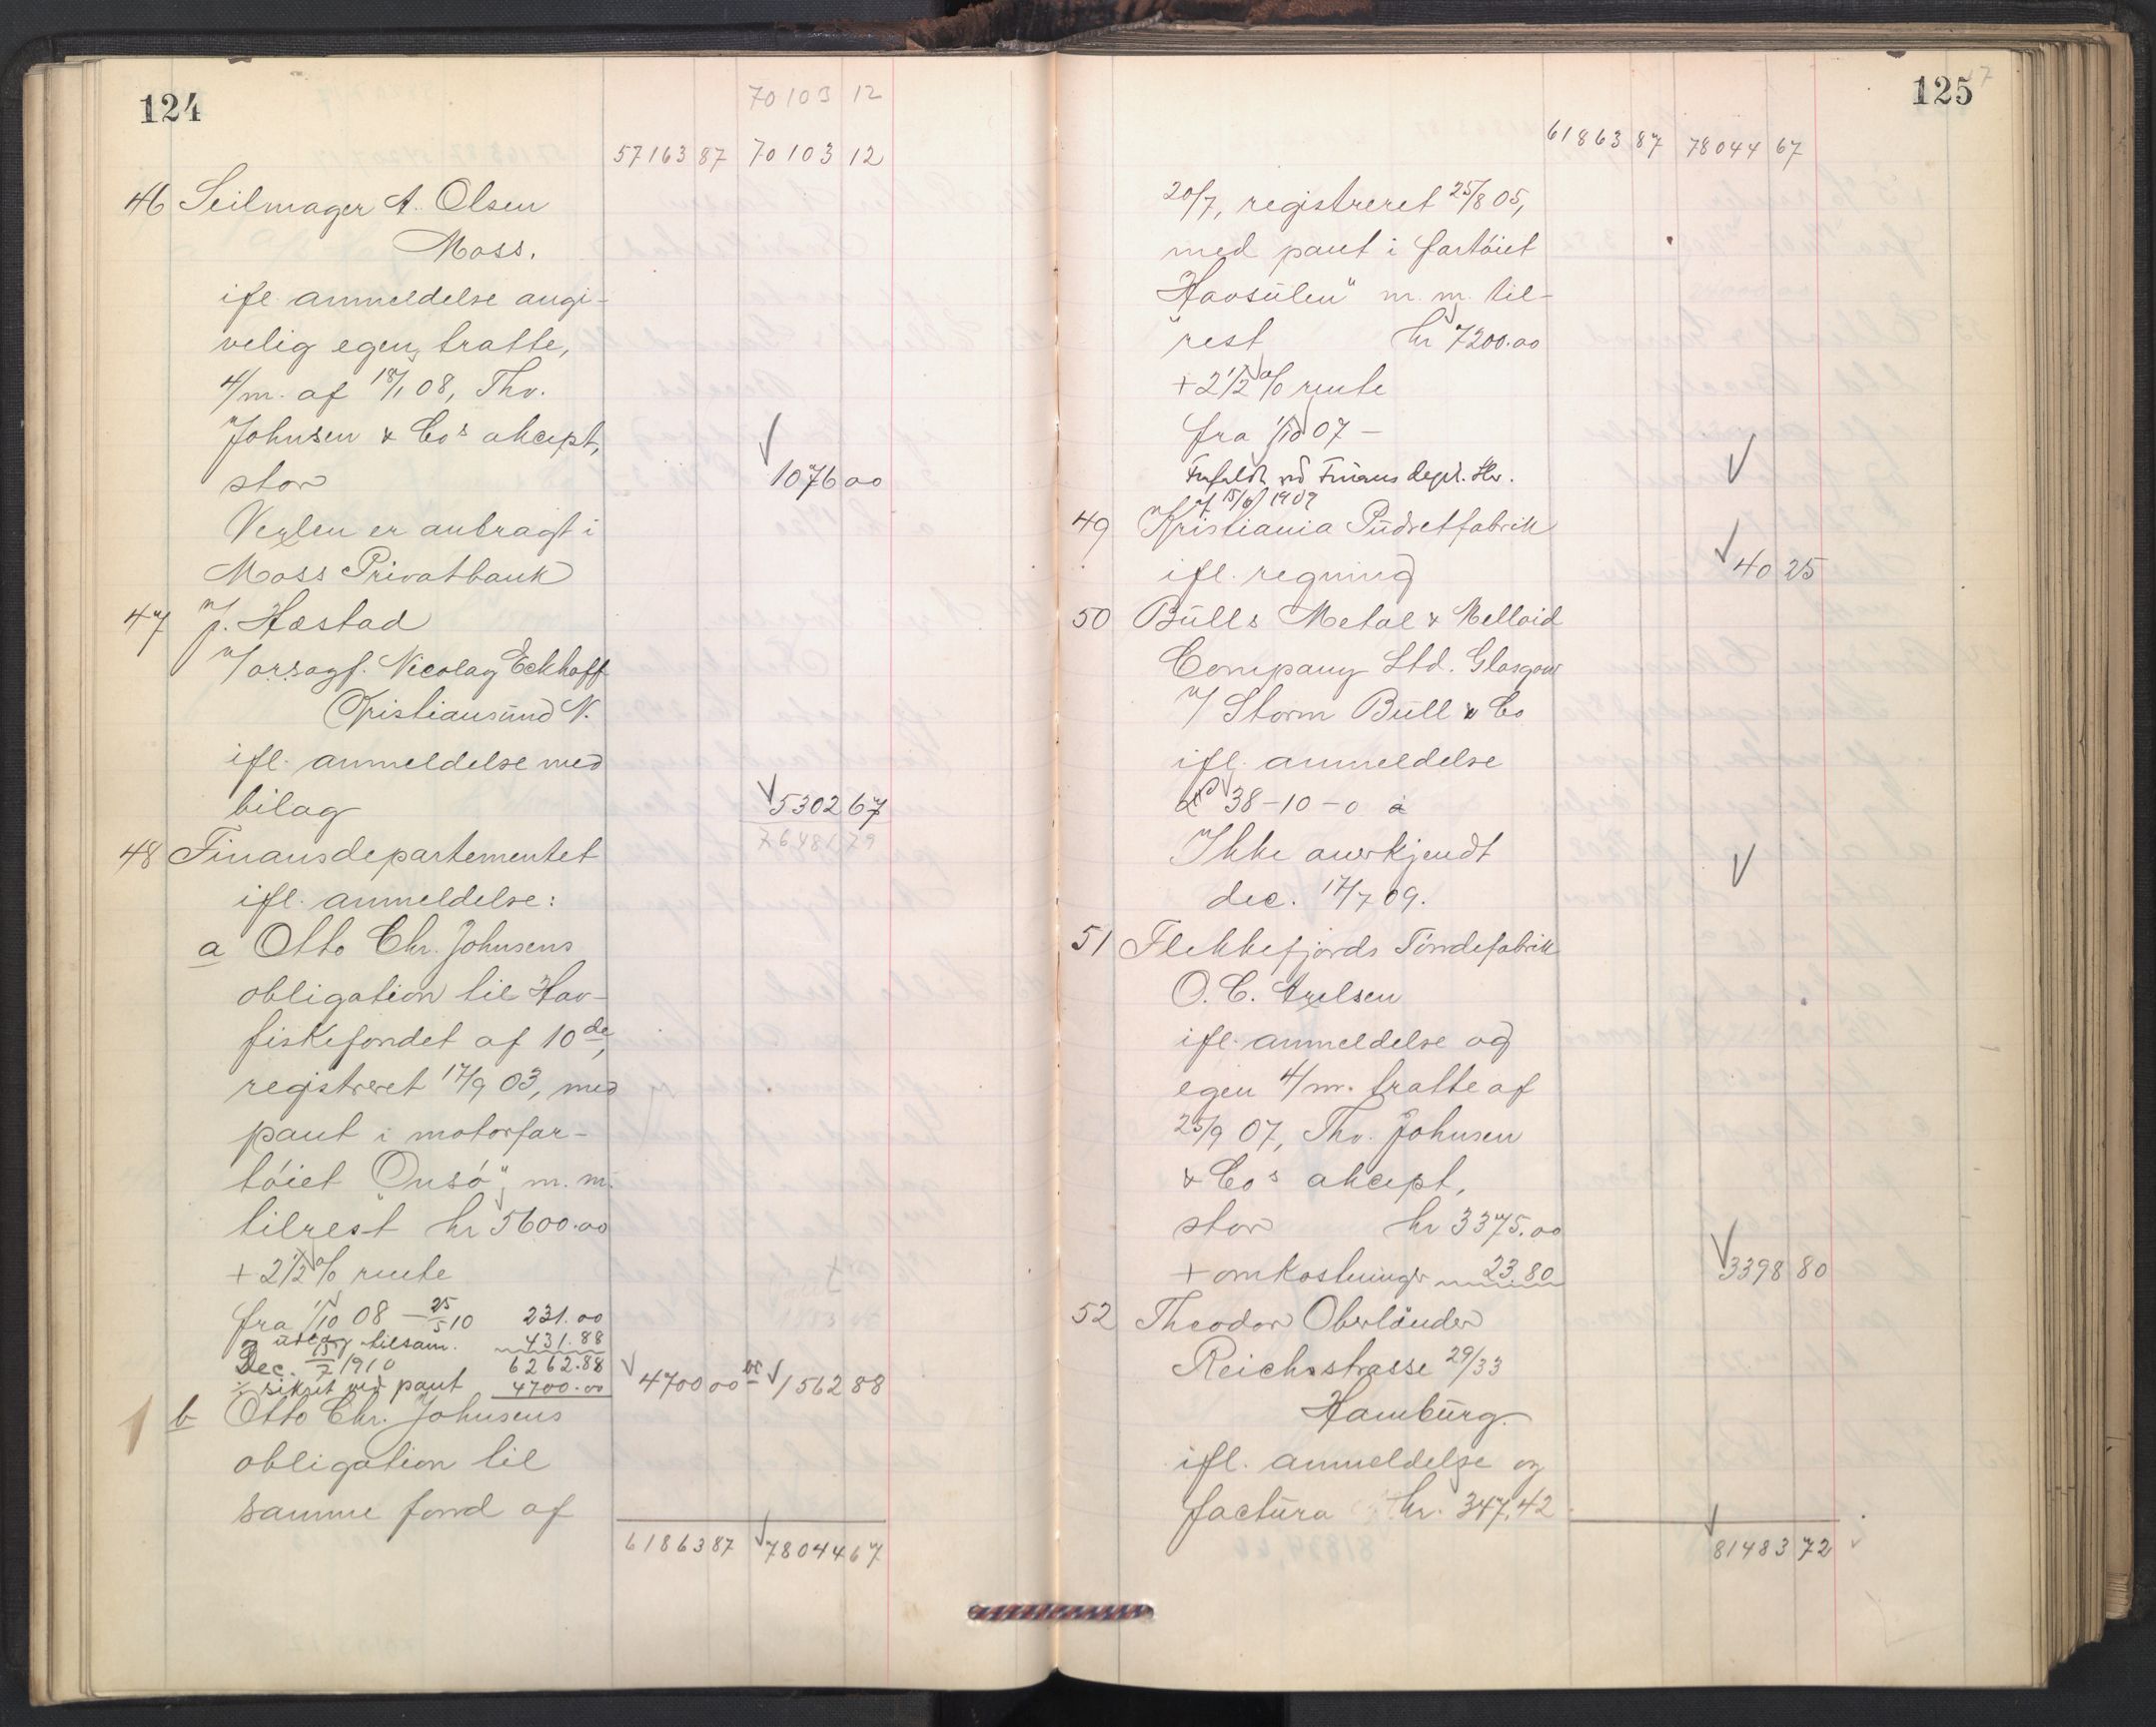 124
70103 12
57163 87 70103 12
46 Seilmager A. Olsen
Moss.
ifl. anmeldelse angi-
velig egen tratte,
4/m. af 18/1 08, Thv.
Johnsen & Co's akcept,
stor 1076 00
Vexlen er anbragt i
Moss Privatbank
47 J. Hæstad
v/ orsagf. Nicolay Eckhoff
Kristiansund N.
ifl. anmeldelse med
bilag 5302 67
76481 79
48 Finansdepartementet
ifl. anmeldelse:
a Otto Chr. Johnsens
obligation til Hav-
fiskefondet af 10de,
registreret 17/9 03, med
pant i motorfar-
töiet "Onsö", m. m.
tilrest kr 5600.00
+ 2 1/2 % rente
fra 1/10 08 – 25/5 10 231.00
utlæg tilsam. 431.88
Dec. 15/7 1910 6262.88
÷ sikret ved pant 4700.00 4700 00 1562 88
b Otto Chr. Johnsens
obligation til
samme fond af
61863 87 78044 67
125
61863 87 78044 67
20/7, registreret 25/8 05,
med pant i fartöiet
"Havsulen" m. m. til-
rest kr 7200.00
+ 2 1/2 % rente
fra 1/10 07 –
Frafaldt ved Finans dept. skr.
af 15/6 1909
49 Kristiania Pudretfabrik
ifl. regning 40 25
50 Bulls Metal & Melloid
Company Ltd. Glasgow
v/ Storm Bull & Co
ifl. anmeldelse
£ 38-10-0 à
Ikke anerkjendt
dec. 17/7 09.
51 Flekkefjords Töndefabrik
O. C. Axelsen
ifl. anmeldelse og
egen 4/m. tratte af
25/9 07, Thv. Johnsen
& Co's akcept,
stor kr 3375.00
+ omkostninger 23.80 3398 80
52 Theodor Oberländer
Reichsstrasse 29/33
Hamburg.
ifl. anmeldelse og
factura kr. 347,42
81483 72